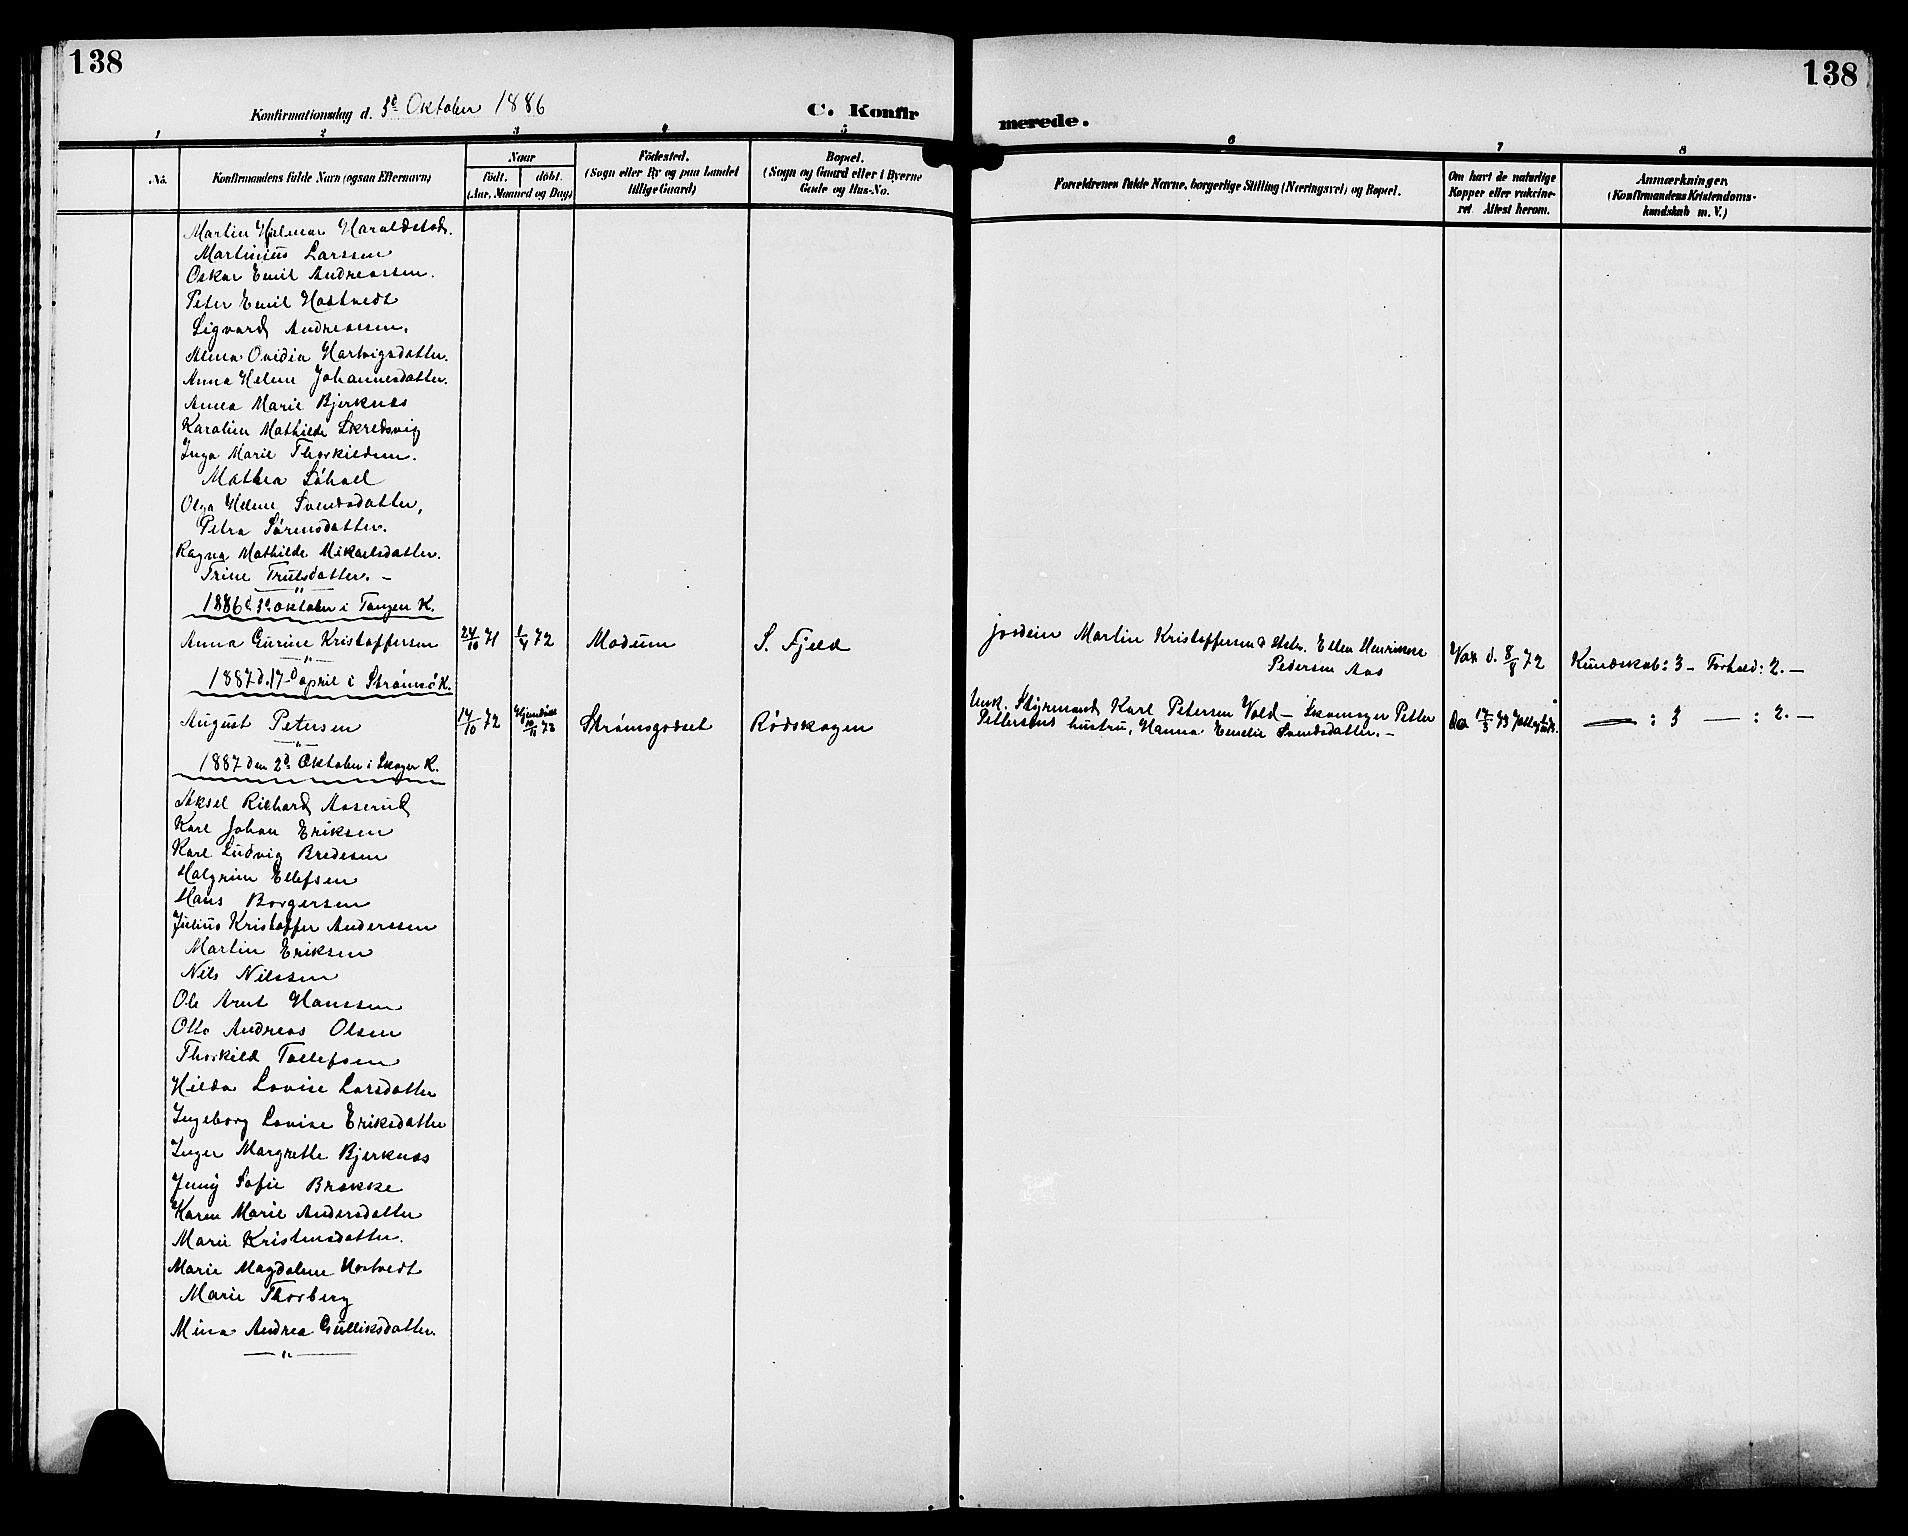 138
138
Konfirmationsdag d. 3d Oktober 1886
C. Konfir
merede.
1 2 3 4 5 6 7 8
No.
Konfirmandens fulde Navn (ogsaa Efternavn)
Naar
födt. döbt.
(Aar, Maaned og Dag)
Födested.
(Sogn eller By og paa Landet
tillige Gaard)
Bopæl.
(Sogn og Gaard eller i Byerne
Gade og Hus-No.
Forældrenes fulde Navne, borgerlige Stilling (Næringsvei) og Bopæl.
Om havt de naturlige
Kopper eller vakcine-
ret Attest herom.
Anmærkninger.
(Konfirmandens Kristendoms-
kundskab m. V.)
Martin Hjelmar Haraldstad.
Martinius Larssen
Oskar Emil Andreassen.
Peter Emil Hostvedt
Sigvard Andreassen.
Alma Ovidia Hartvigsdatter.
Anna Helene Johannesdatter.
Anna Marie Bjerknæs
Karoline Mathilde Skredsvig
Inga Marie Thorkildsen.
Mathea Söhoel
Olga Helene Svendsdatter,
Petra Sörensdatter.
Ragna Mathilde Mikaelsdatter.
Trine Trulsdatter. –
1886 d. 3d oktober i Tangen K.
Anna Gurine Kristoffersen 24/10 71 1/4 72 Modum S. Fjeld Jordein Martin Kristoffersen & Hstr. Ellen Henrikke
Pedersen Aas
Vax d. 8/8 72 Kundskab: 3 – Forhold: 2. –
1887 d. 17d april i Strømsö K.
August Petersen 14/10 72 Hjemdöbt 10/11 73 Strømsgodset Rødskogen Unk. Styrmand Karl Petersen Vold – Skomager Petter
Pettersens hustru, Hanna Emelie Svendsdatter. –
Do 17/3 73 — : 3 — : 2. –
1887 den 2d Oktober i Skoger K.
Aksel Richard Aaserud
Karl Johan Eriksen
Karl Ludvig Bredesen
Halgrim Ellefsen
Hans Borgersen
Julius Kristoffer Anderssen
Martin Eriksen
Nils Nilssen
Ole Arnt Hanssen
Otto Andreas Olsen
Thorkild Tollefsen
Hilda Lovise Larsdatter
Ingeborg Lovise Eriksdatter
Inger Margrethe Bjerknæs
Jenny Sofie Brakke
Karen Marie Andersdatter
Marie Kristensdatter.
Marie Magdalene Hostvedt
Marie Thorberg
Mina Andrea Gulliksdatter.